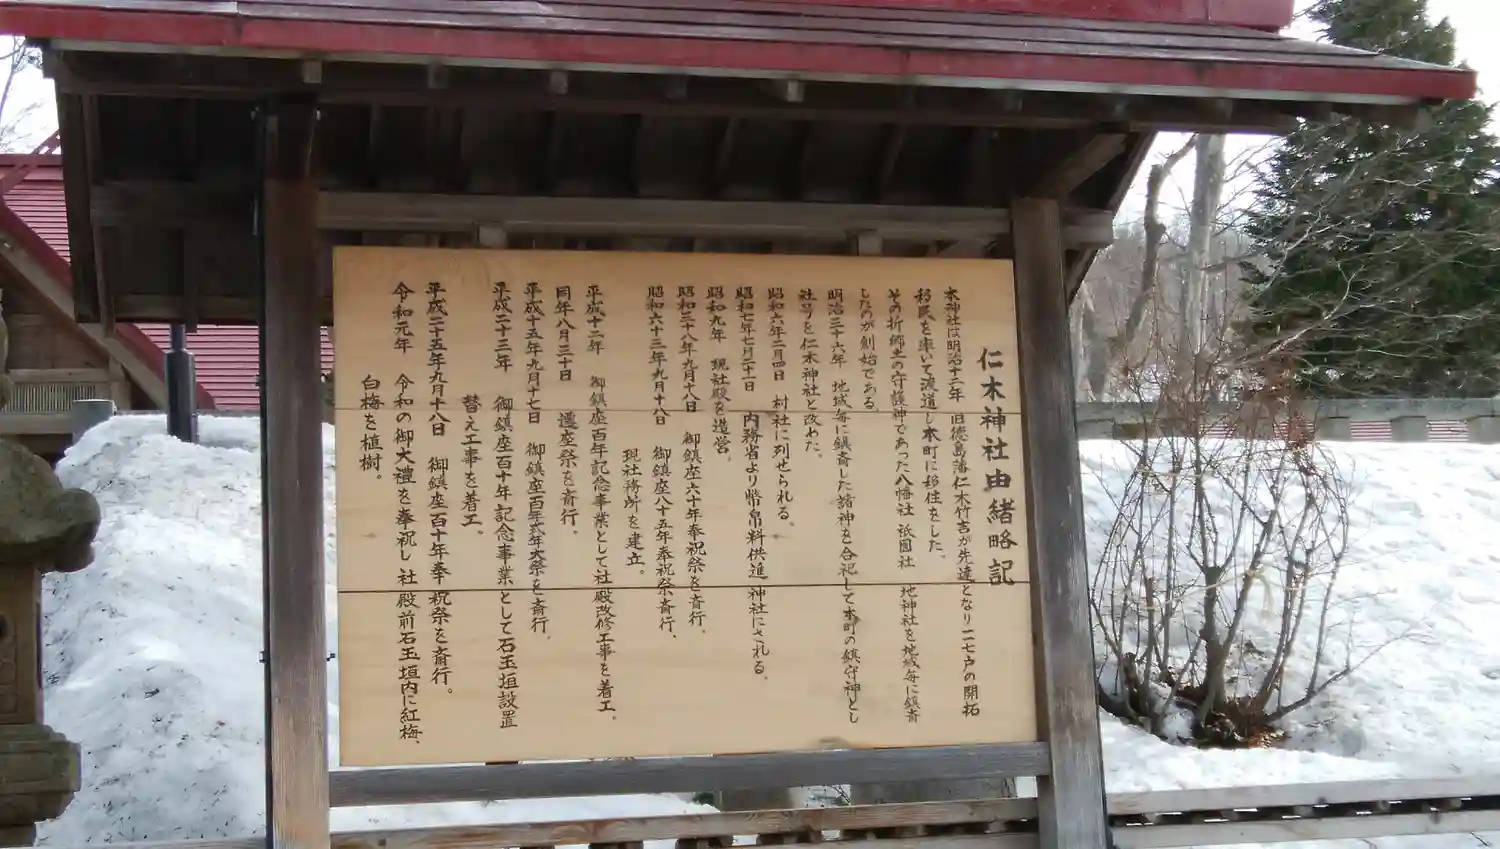 仁木神社由緒略記
本神社は明治十二年 旧徳島藩仁木竹吉が先達となり一一七戸の開拓
移民を率いて渡道し本町に移住をした。
その折郷土の守護神であった八幡社 祇園社 地神社を地域毎に鎮斎
したのが創始である
明治三十六年 地域毎に鎮斎した諸神を合祀して本町の鎮守神とし
社号を仁木神社と改めた。
昭和六年二月四日 村社に列せられる。
昭和七年七月二十一日 内務省より幣帛料供進神社にされる。
昭和九年 現社殿を造営。
昭和三十八年九月十八日 御鎮座六十年奉祝祭を斎行。
昭和六十三年九月十八日 御鎮座八十五年奉祝祭斎行、
現社務所を建立。
平成十二年 御鎮座百年記念事業として社殿改修工事を着工。
同年八月三十日 遷座祭を斎行。
平成十五年九月十七日 御鎮座百年式年大祭を斎行。
平成二十三年 御鎮座百十年記念事業として石玉垣設置
替え工事を着工。
平成二十五年九月十八日 御鎮座百十年奉祝祭を斎行。
令和元年 令和の御大禮を奉祝し社殿前石玉垣内に紅梅、
白梅を植樹。